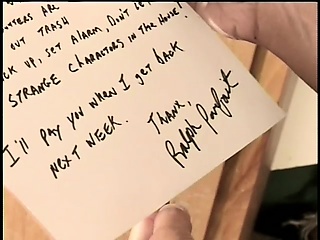 ARE
OUT TRASH
UP, SET ALARM, DON'T LET
STRANGE CHARACTERS IN THE HOUSE!
I'LL PAY YOU WHEN I GET BACK
NEXT WEEK.
THANX,
RALPH